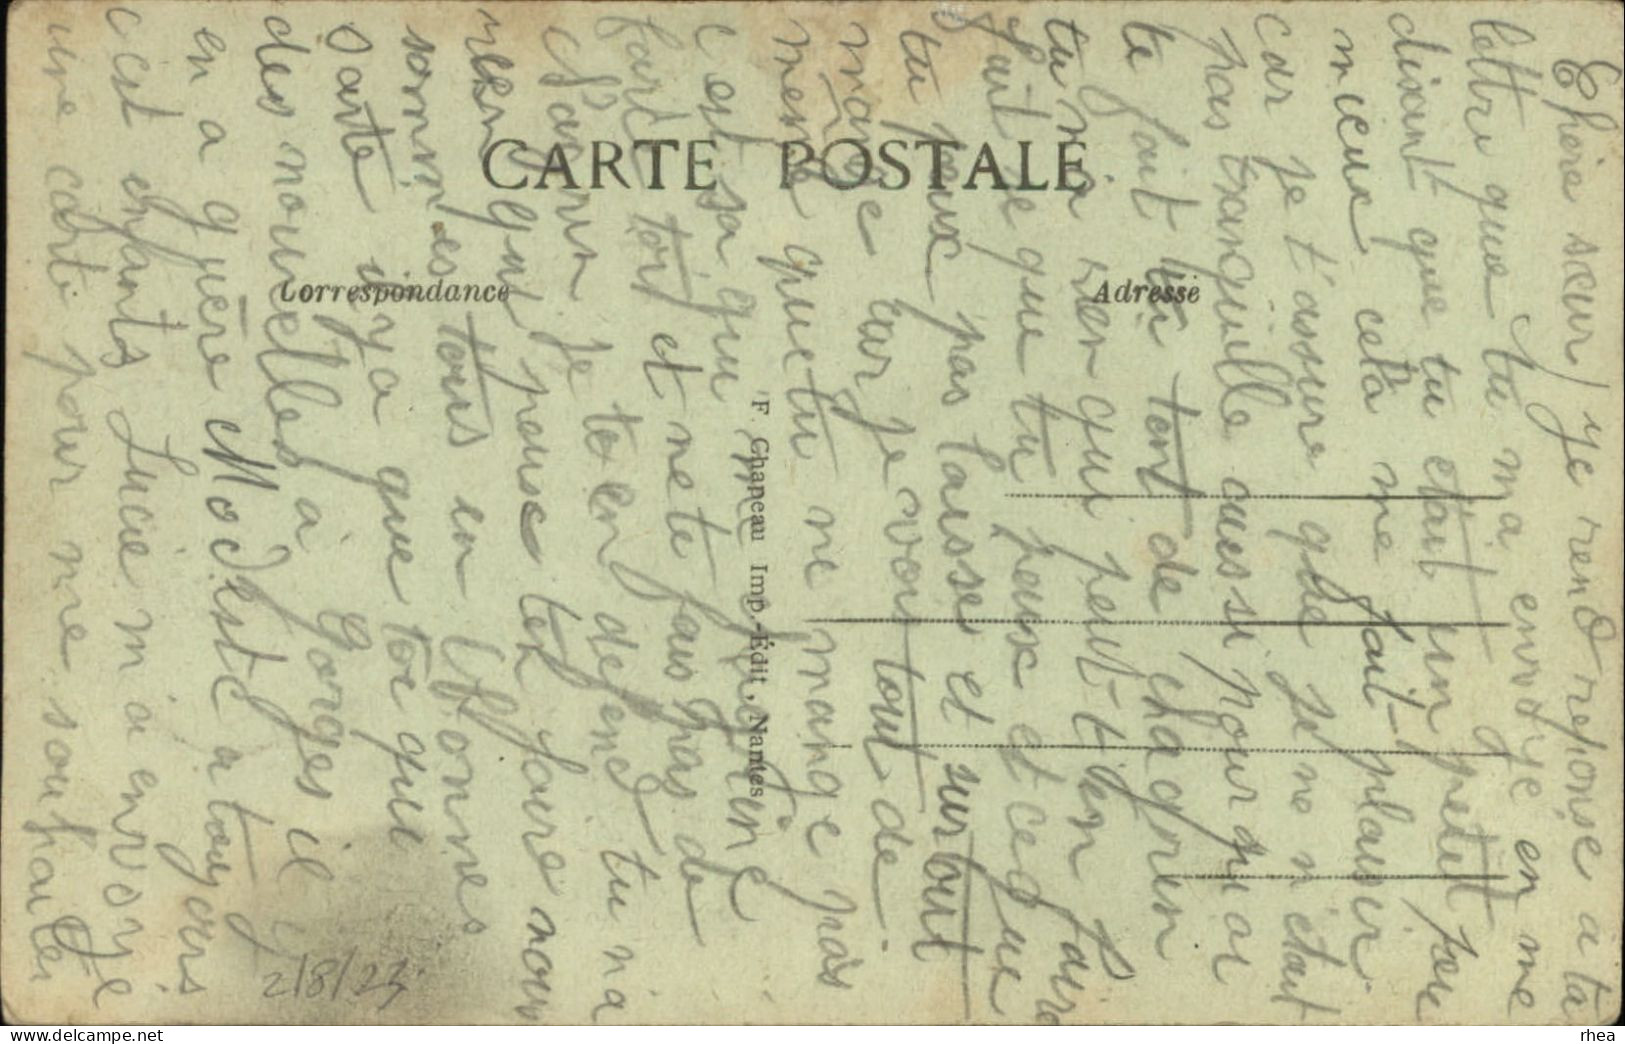 CARTE POSTALE
Correspondance
Adresse
F. Chapeau Imp.-Édit, Nantes
Chère sœur, je rend reponse a ta
lettre que tu m'a envoiye en me
disant que tu etait un petit peu
mieux cela me fait plaisir
car je t'assure que je ne n'etait
pas tranquille aussi pourquoi
te fait tu tent de chagrin
tu n'a rien qui peut t'en faire
fait ce que tu peux et ce que
tu peux pas laisse et surtout
mange car je voi tout de
meme que tu ne mange pas
c'est sa qui
fort toi et ne te fais pas de
chagrin je te en defend tu n'a
rien qui peuse tet faire nous
sommes tous en bonnes
sante il y a que toi qui
des nouvelles a Gorges il y
en a guère Modeste a toujours
c'est enfants Lucie m'a envoye
une carte pour me souhaiter
2/8/23
rhea